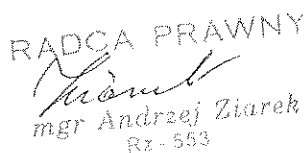 RADCA PRAWNY
mgr Andrzej Ziarek
Rz-553